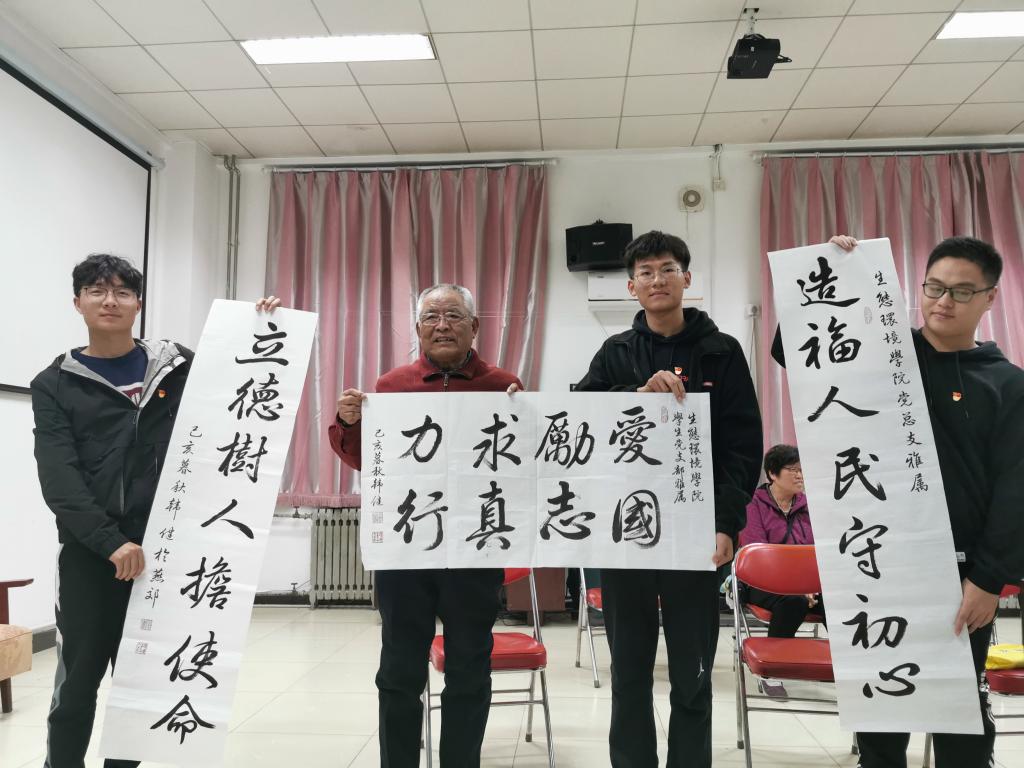 生態環境學院党总支雅属
造福人民守初心
生態環境學院
學生党支部雅属
愛國
勵志
求真
力行
己亥暮秋韩健
立德樹人擔使命
己亥暮秋韩健於燕郊